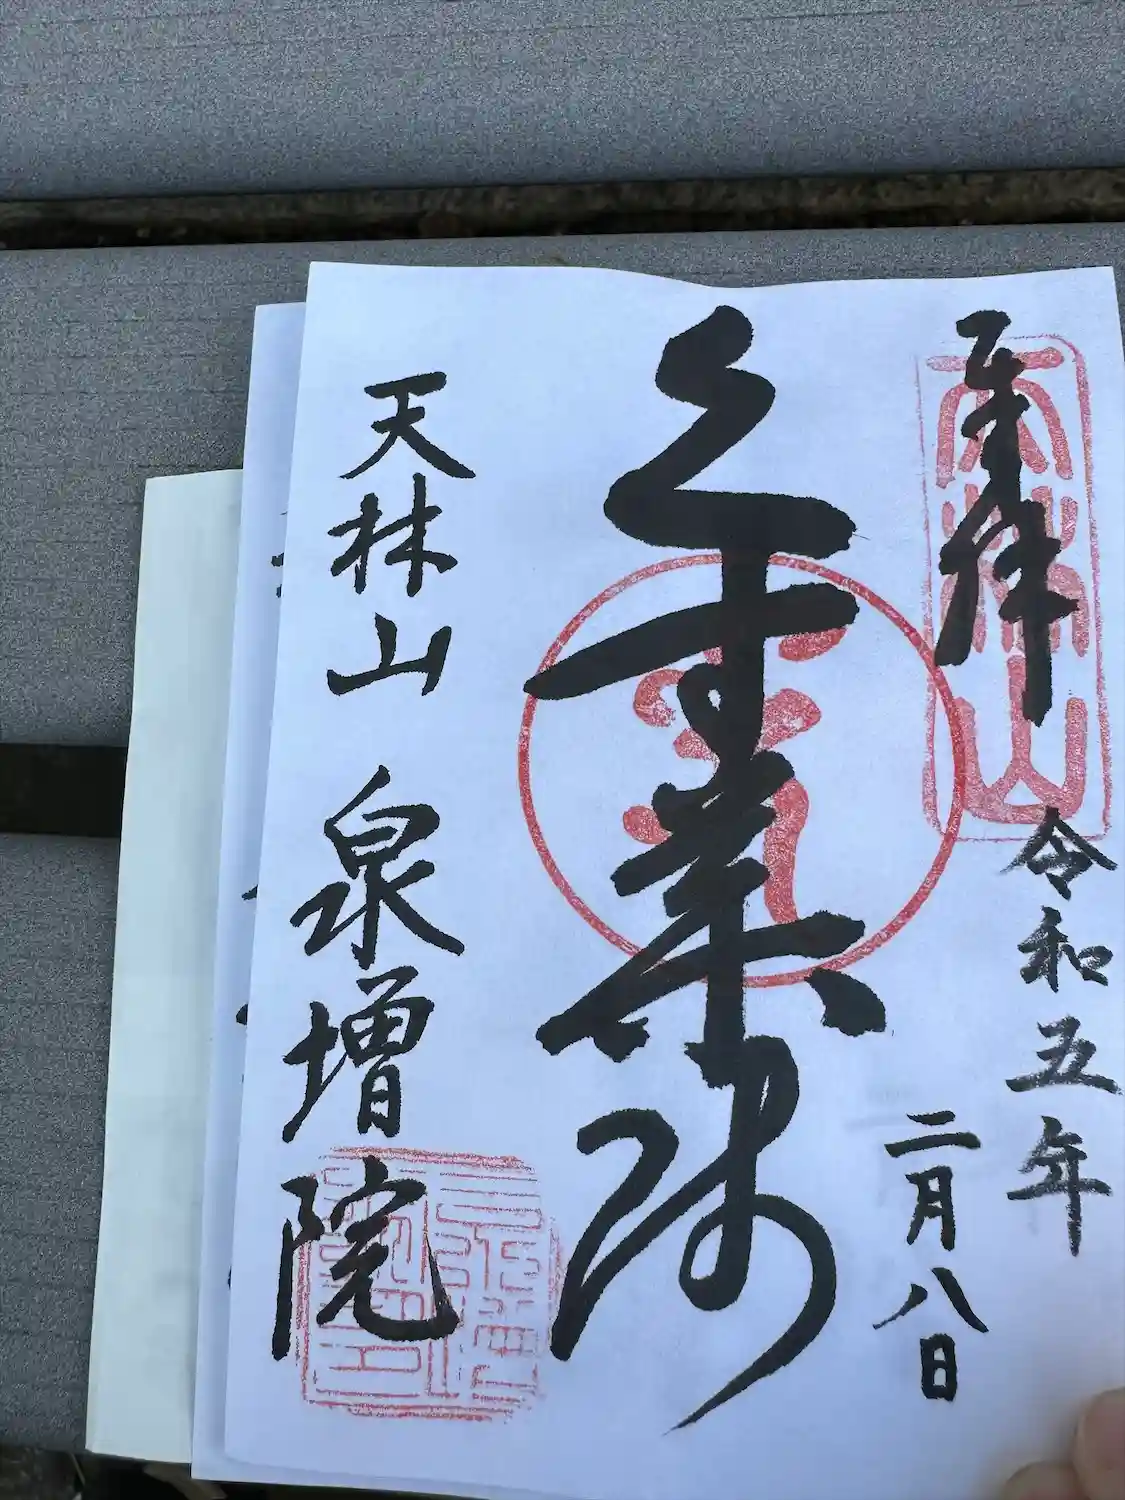 奉拝
天林山
令和五年
二月八日
薬師
天林山 泉増院